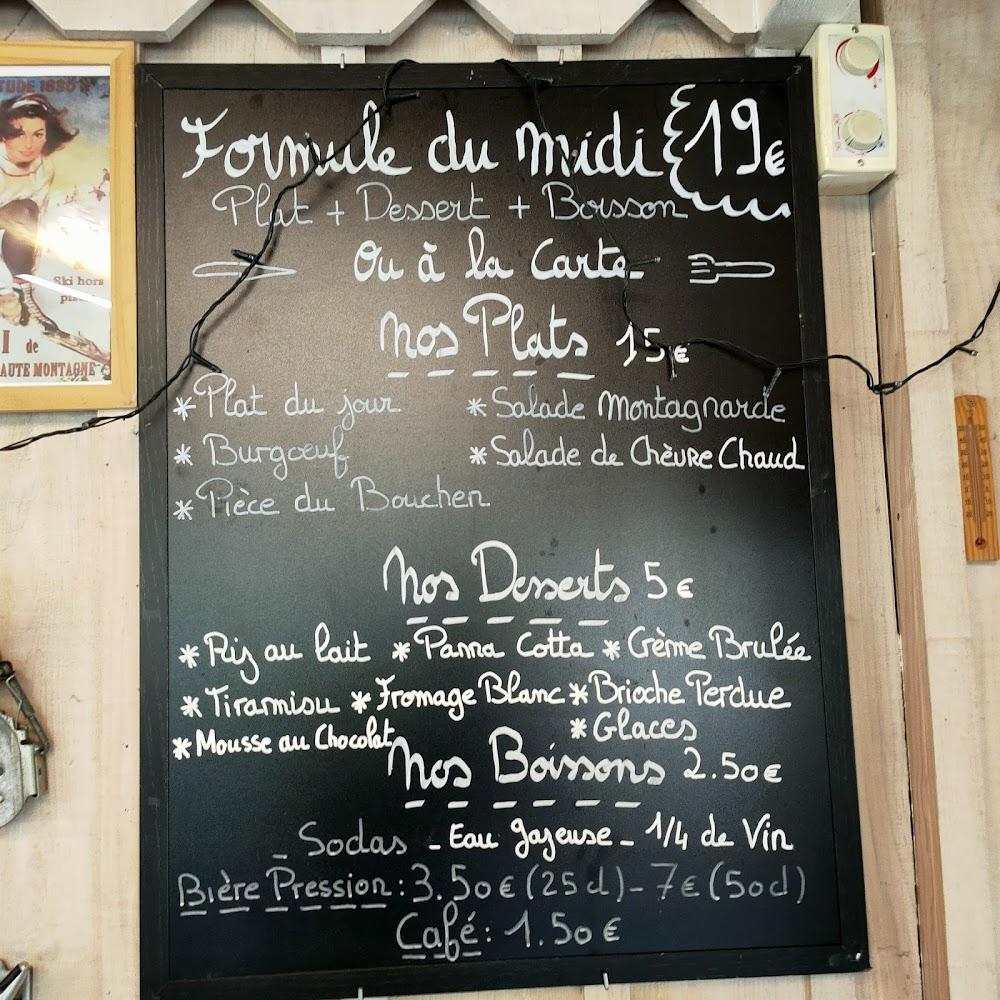 TUDE 1850
Ski hors
I de
AUTE MONTAGNE
Formule du midi 19€
Plat + Dessert + Boisson
Ou à la Carte
Nos Plats 15€
* Plat du jour * Salade Montagnarde
* Burgoeuf * Salade de Chèvre Chaud
* Pièce du Boucher
Nos Desserts 5€
* Riz au lait * Panna Cotta * Crème Brulée
* Tiramisu * Fromage Blanc * Brioche Perdue
* Mousse au Chocolat * Glaces
Nos Boissons 2.50€
- Sodas - Eau gazeuse - 1/4 de Vin
Bière Pression : 3.50€ (25cl) - 7€ (50cl)
Café : 1.50€